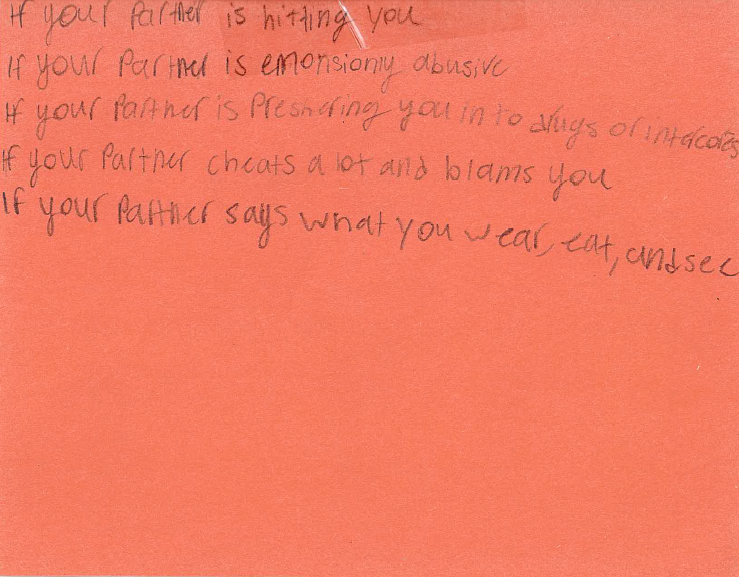 If your Partner is hitting you
If your Partner is emonsionly abusive
If your Partner is Preshering you in to drugs or intercores
If your Partner cheats a lot and blams you
If your Partner says what you wear, eat, and see